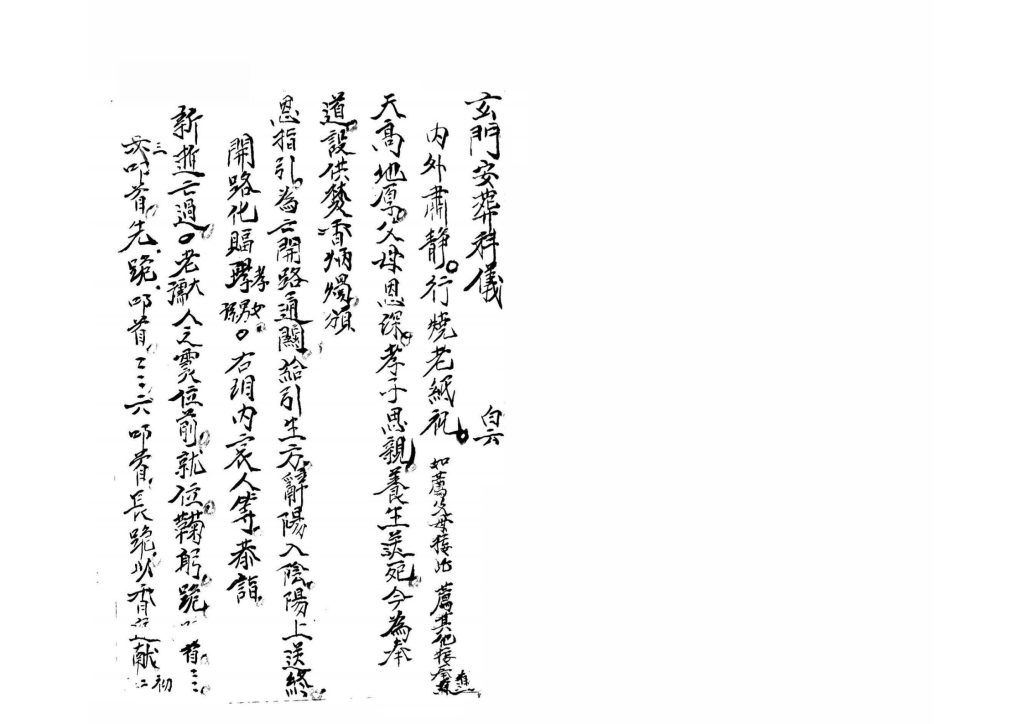 玄門安葬科儀
白云
內外肅靜。行燒老紙祝。如薦父母接此 薦其他接
天高地厚父母恩深孝子思親養生送死今為奉
道設供焚香炳燭頒
恩指引為亡開路通關給引生方辭陽入陰陽上送終
開路化賜孝。右玥內哀人等恭詣
新逝亡過。老人之靈位前就位鞠躬跪 首三
三叩首先跪叩首二三六叩首長跪以香 初献